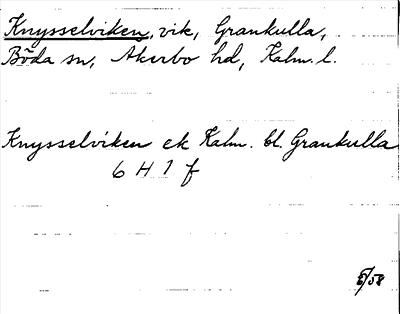 Knysselviken, vik, Grankulla,
Böda sn, Åkerbo hd, Kalm. l.
Knysselviken ek Kalm. bl. Grankulla
6 H 1 f
5/58